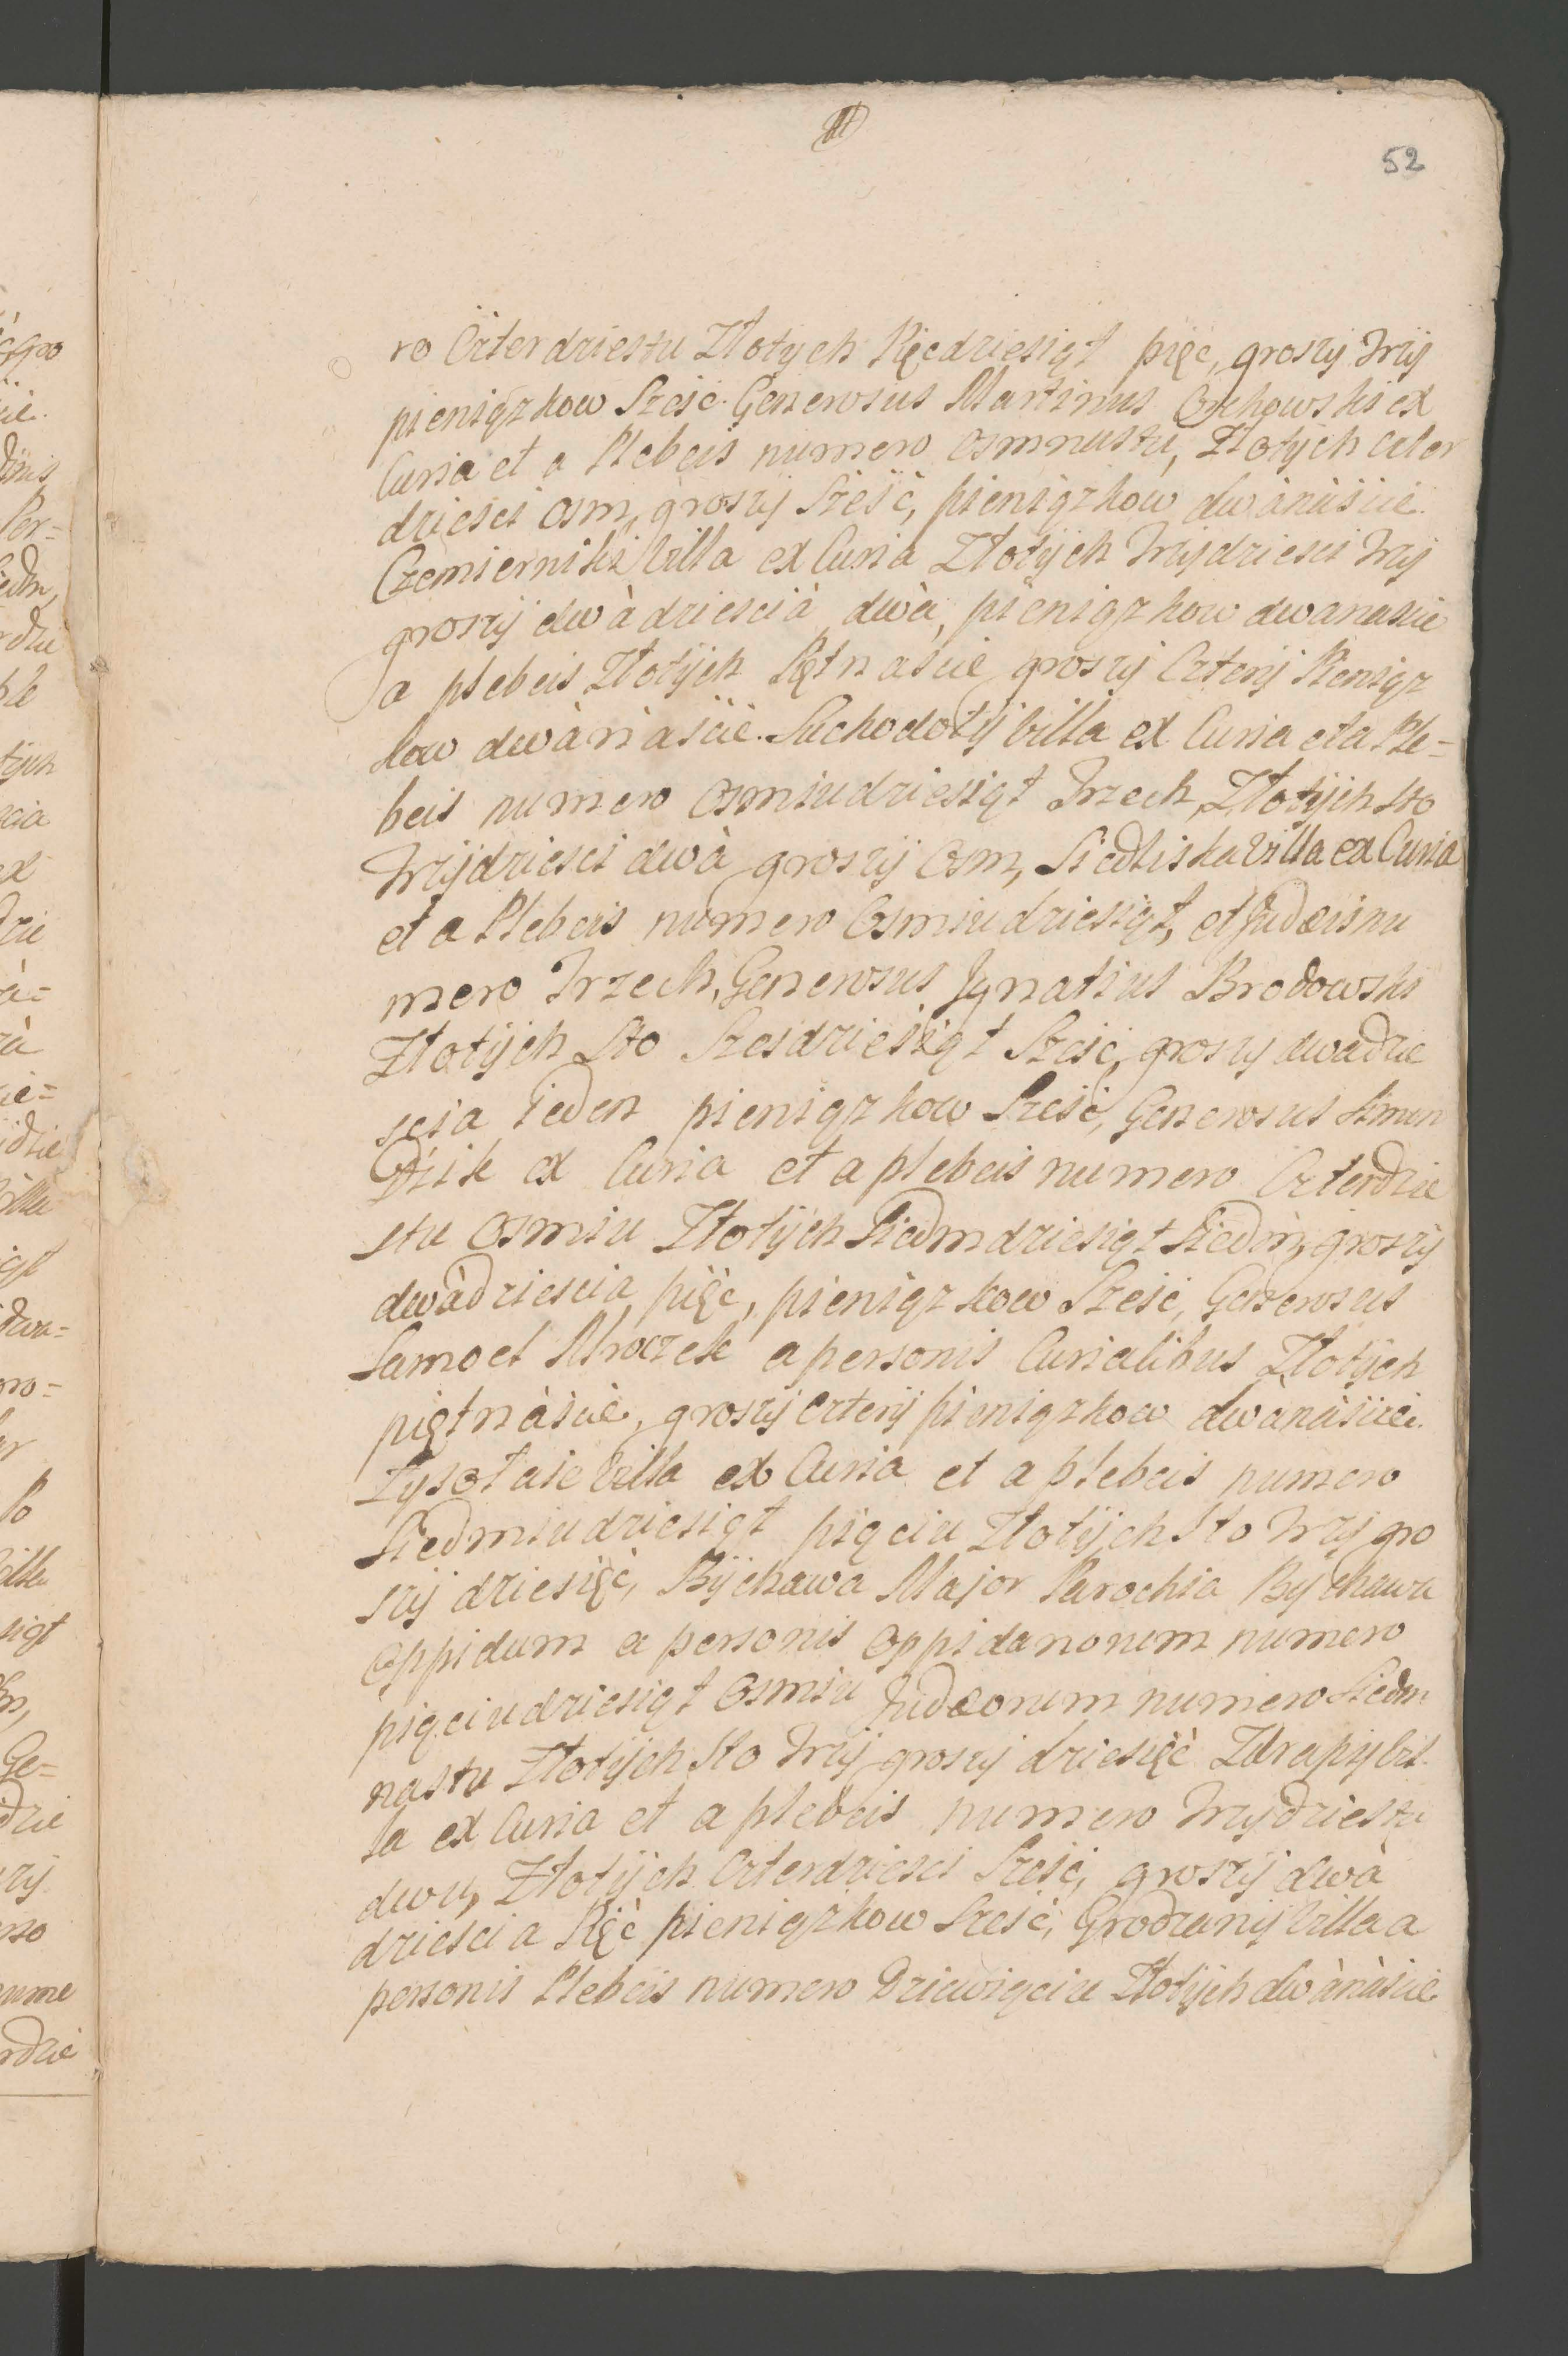 52
ro Czterdziestu Złotych Pięcdziesiąt pięć, groszy trzy
pieniązkow Szesc. Generosus Martinus Orchowski ex
Curia et a Plebeis numero osmnastu, Złotych czter
dziesci osm, groszy Szesc, pieniązkow dwànàscie.
Czemierniki Villa ex Curia Złotych Trzydziesci trzy
groszy dwàdziescià dwà, pieniązkow dwanascie
a plebeis Złotych Piętnascie groszy Cztery Pieniąz
kow dwànàscie. Suchodoły Villa ex Curia et a Ple=
beis numero osmiudziesiąt Trzech, Złotych sto
Trzydziesci dwà groszy Osm, Siedliska Villa ex Curia
et a Plebeis numero Osmiudziesiąt, et Judæis nu
mero Trzech, Generosus Ignatius Brodowski
Złotych Sto Szesdziesiąt Szesc, groszy dwadzie
scia ieden pieniązkow Szesc, Generosus
Dzik ex Curia et a plebeis numero Czterdzie
stu osmiu Złotych Siedmdziesiąt Siedm, groszy
dwàdziescia pięć, pieniązkow Szesc, Generosus
Samoel Mroczek a personis Curialibus Złotych
piętnàscie, groszy cztery pieniązkow dwànàscie.
Łysołaie Villa ex Curia et a plebeis numero
Siedmiudziesiąt pięciu Złotych Sto trzy gro
szy dziesięć, Bychawa Major Parochia Bychawa
Oppidum a personis Oppidanorum numero
pięciudziesiąt Osmiu Judæorum numero Siedm
nastu Złotych Sto trzy groszy dziesięć Zdrapy Vil
la ex Curia et a plebeis numero trzydziestu
dwu, Złotych Czterdziesci Szesc, groszy dwà
dziescia Pięć pieniązkow Szesc, Grodzany Villa a
personis Plebeis numero Dziewięciu Złotych dwànàscie